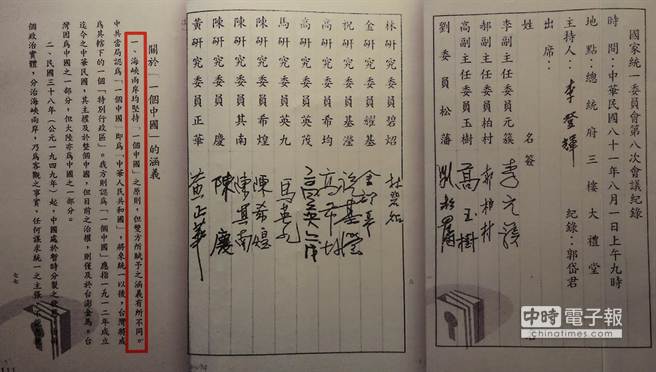 國家統一委員會第八次會議紀錄
時間：中華民國八十一年八月一日上午九時
地點：總統府三樓大禮堂
主持人：李登輝 紀錄：郭岱君
出席：
姓名 簽
李副主任委員元簇 李元簇
郝副主任委員柏村 郝柏村
高副主任委員玉樹 高玉樹
劉委員松藩 劉松藩
林研究委員碧炤 林碧炤
金研究委員耀基 金耀基
祝研究委員基瀅 祝基瀅
高研究委員希均 高希均
高研究委員英茂 高英茂
馬研究委員英九 馬英九
陳研究委員希煌 陳希煌
陳研究委員其南 陳其南
陳研究委員慶 陳慶
黃研究委員正華 黃正華
關於「一個中國」的涵義
一、海峽兩岸均堅持「一個中國」之原則，但雙方所賦予之涵義有所不同。
中共當局認為「一個中國」即為「中華人民共和國」，將來統一以後，台灣將成
為其轄下的一個「特別行政區」。我方則認為「一個中國」應指一九一二年成立
迄今之中華民國，其主權及於整個中國，但目前之治權，則僅及於台澎金馬。台
灣固為中國之一部分，但大陸亦為中國之一部分。
二、民國三十八年（公元一九四九年）起，中國處於暫時分裂之
個政治實體，分治海峽兩岸，乃為客觀之事實，任何謀求統一之主張
七七
中時電子報
chinatimes.com